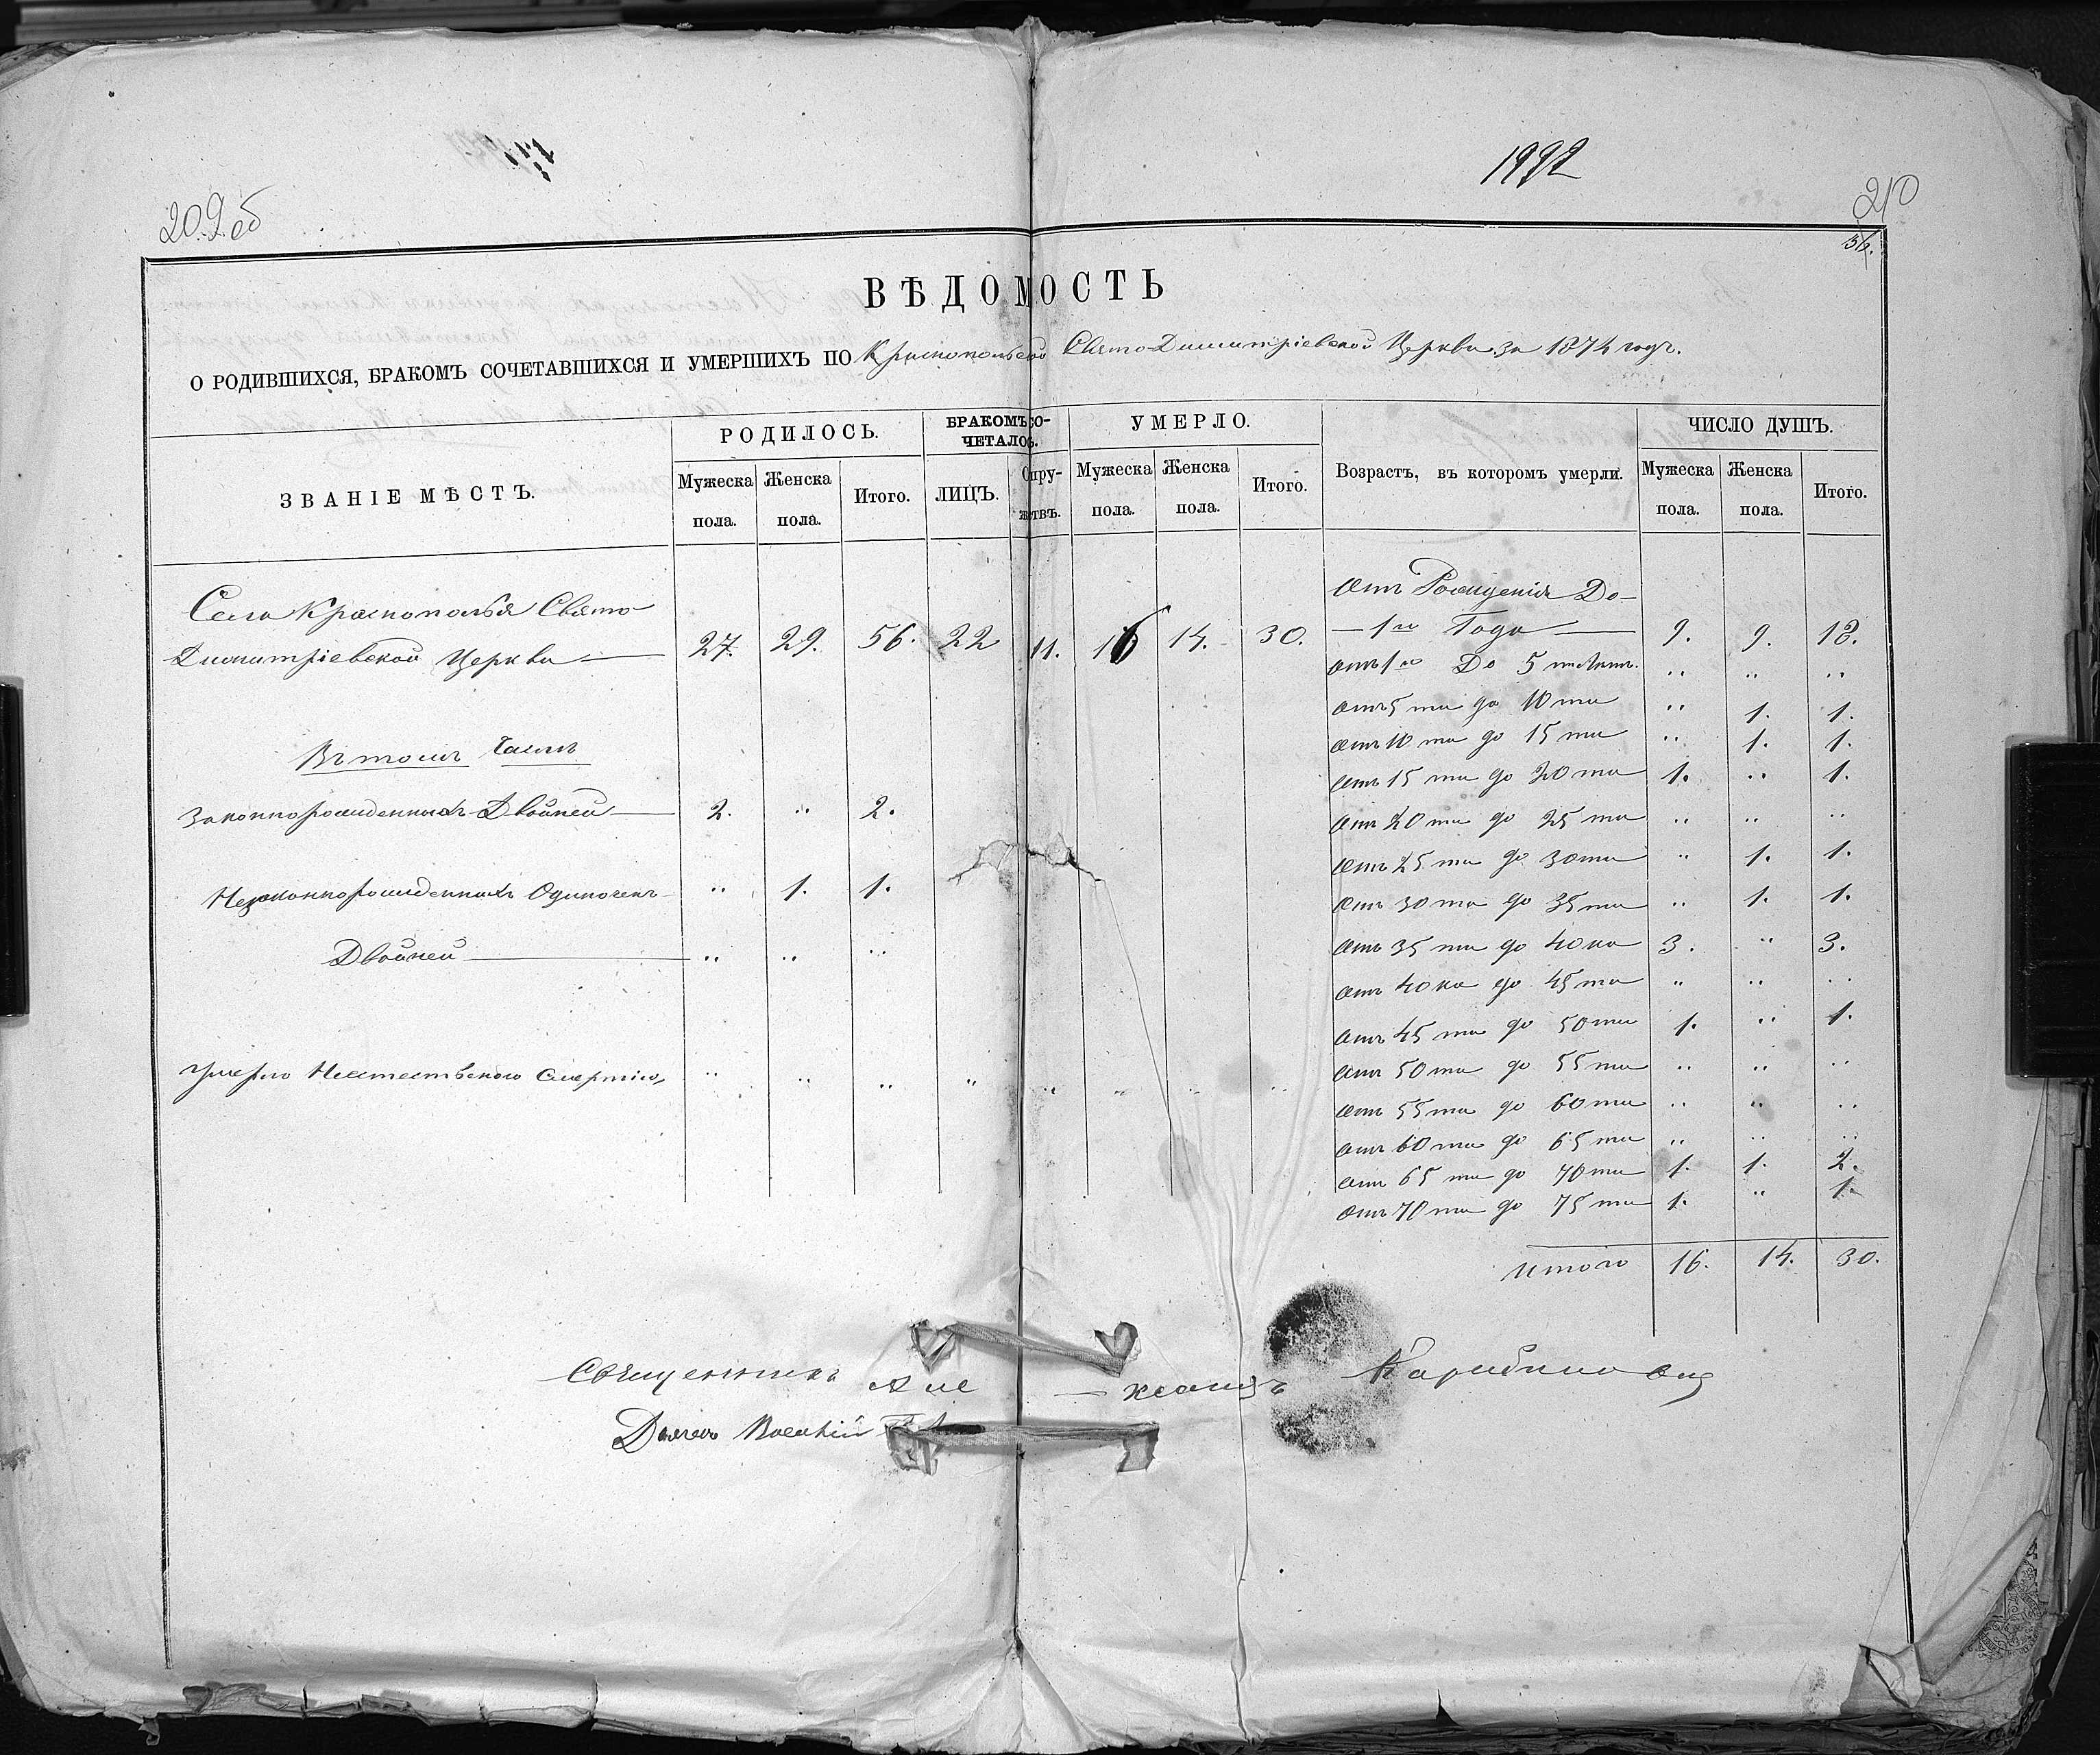 209 об
1992
210
36.
ВѢДОМОСТЬ
О РОДИВШИХСЯ, БРАКОМЪ СОЧЕТАВШИХСЯ И УМЕРШИХЪ ПО Краснопольской Свято-Димитріевской Церкви за 1874 годъ.
ЗВАНІЕ МѢСТЪ. РОДИЛОСЬ. БРАКОМЪ СОЧЕТАЛОСЬ. УМЕРЛО. Возрастъ, въ которомъ умерли. ЧИСЛО ДУШЪ.
Мужеска пола. Женска пола. Итого. ЛИЦЪ. Супружествъ. Мужеска пола. Женска пола. Итого. Мужеска пола. Женска пола. Итого.
Села Краснополья Свято-
Димитріевской Церкви 27. 29. 56. 22 11. 16 14. 30.
Въ томъ числѣ
Законнорожденныхъ Двойней 2. „ 2.
Незаконнорожденныхъ Одиночекъ „ 1. 1.
Двойней „ „ „
Умерло Неестественною Смертію „ „ „ „ „ „ „ „
Отъ Рожденія До
1го Года 9. 9. 18.
отъ 1го До 5ти лѣтъ „ „ „
отъ 5ти до 10ти „ 1. 1.
отъ 10ти до 15ти „ 1. 1.
отъ 15ти до 20ти 1. „ 1.
отъ 20ти до 25ти „ „ „
отъ 25ти до 30ти „ 1. 1.
отъ 30ти до 35ти „ 1. 1.
отъ 35ти до 40ка 3. „ 3.
отъ 40ка до 45ти „ „ „
отъ 45ти до 50ти 1. „ 1.
отъ 50ти до 55ти „ „ „
отъ 55ти до 60ти „ „ „
отъ 60ти до 65ти „ „ „
отъ 65ти до 70ти 1. 1. 2.
отъ 70ти до 75ти 1. „ 1.
Итого 16. 14. 30.
Священникъ Але-
Дьячекъ